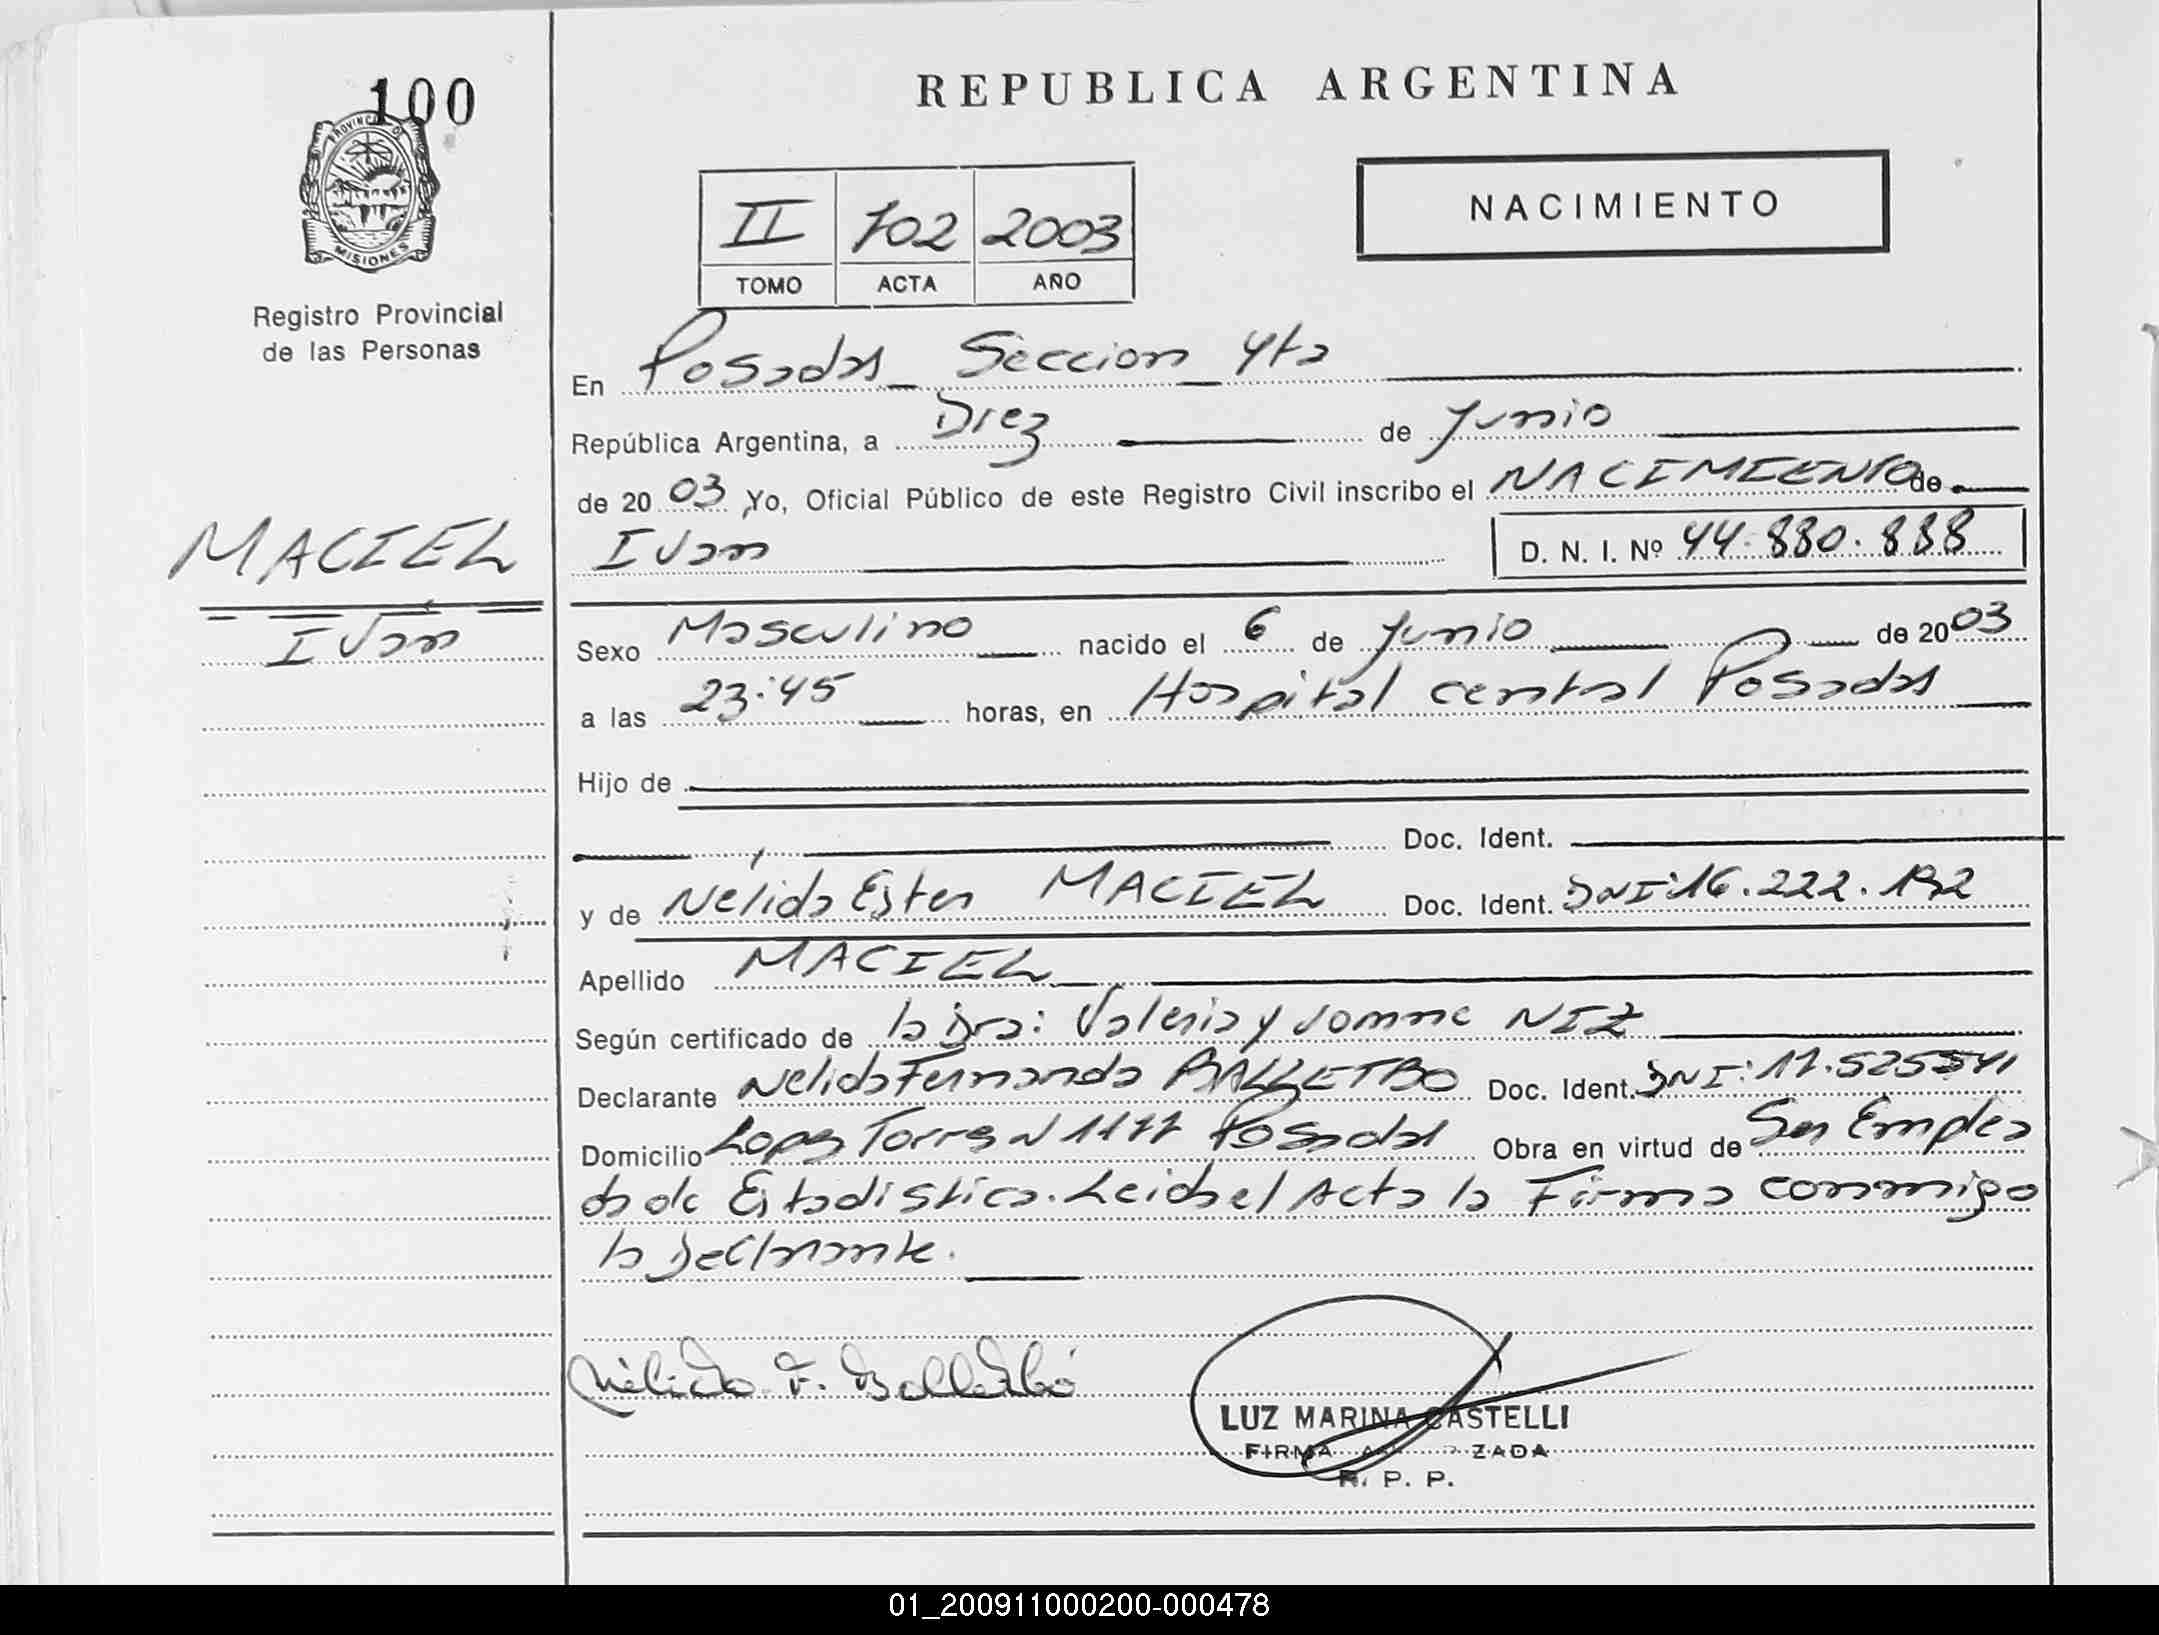 100
PROVINCIA DE
MISIONES
Registro Provincial
de las Personas
REPUBLICA ARGENTINA
II 102 2003
TOMO ACTA AÑO
NACIMIENTO
En Posadas Seccion 4ta
República Argentina, a Diez de Junio
de 20 03 Yo, Oficial Público de este Registro Civil inscribo el NACIMIENTO de
MACIEL
Ivan
Ivan D. N. I. Nº 44.880.888
Sexo Masculino nacido el 6 de Junio de 20 03
a las 23:45 horas, en Hospital central Posadas
Hijo de
Doc. Ident.
y de Nélida Ester MACIEL Doc. Ident. DNI: 16.222.192
Apellido MACIEL
Según certificado de la Dra: Valeria y NIZ
Declarante Nelida Fernanda BALLETBO Doc. Ident. DNI: 11.525541
Domicilio Lopez Torres N 1177 Posadas Obra en virtud de Ser Emplea
da de Estadistica. Leida el Acta la Firma conmigo
la Declarante.
Nélida F. Balletbó
LUZ MARINA CASTELLI
FIRMA ZADA
R. P. P.
01_200911000200-000478